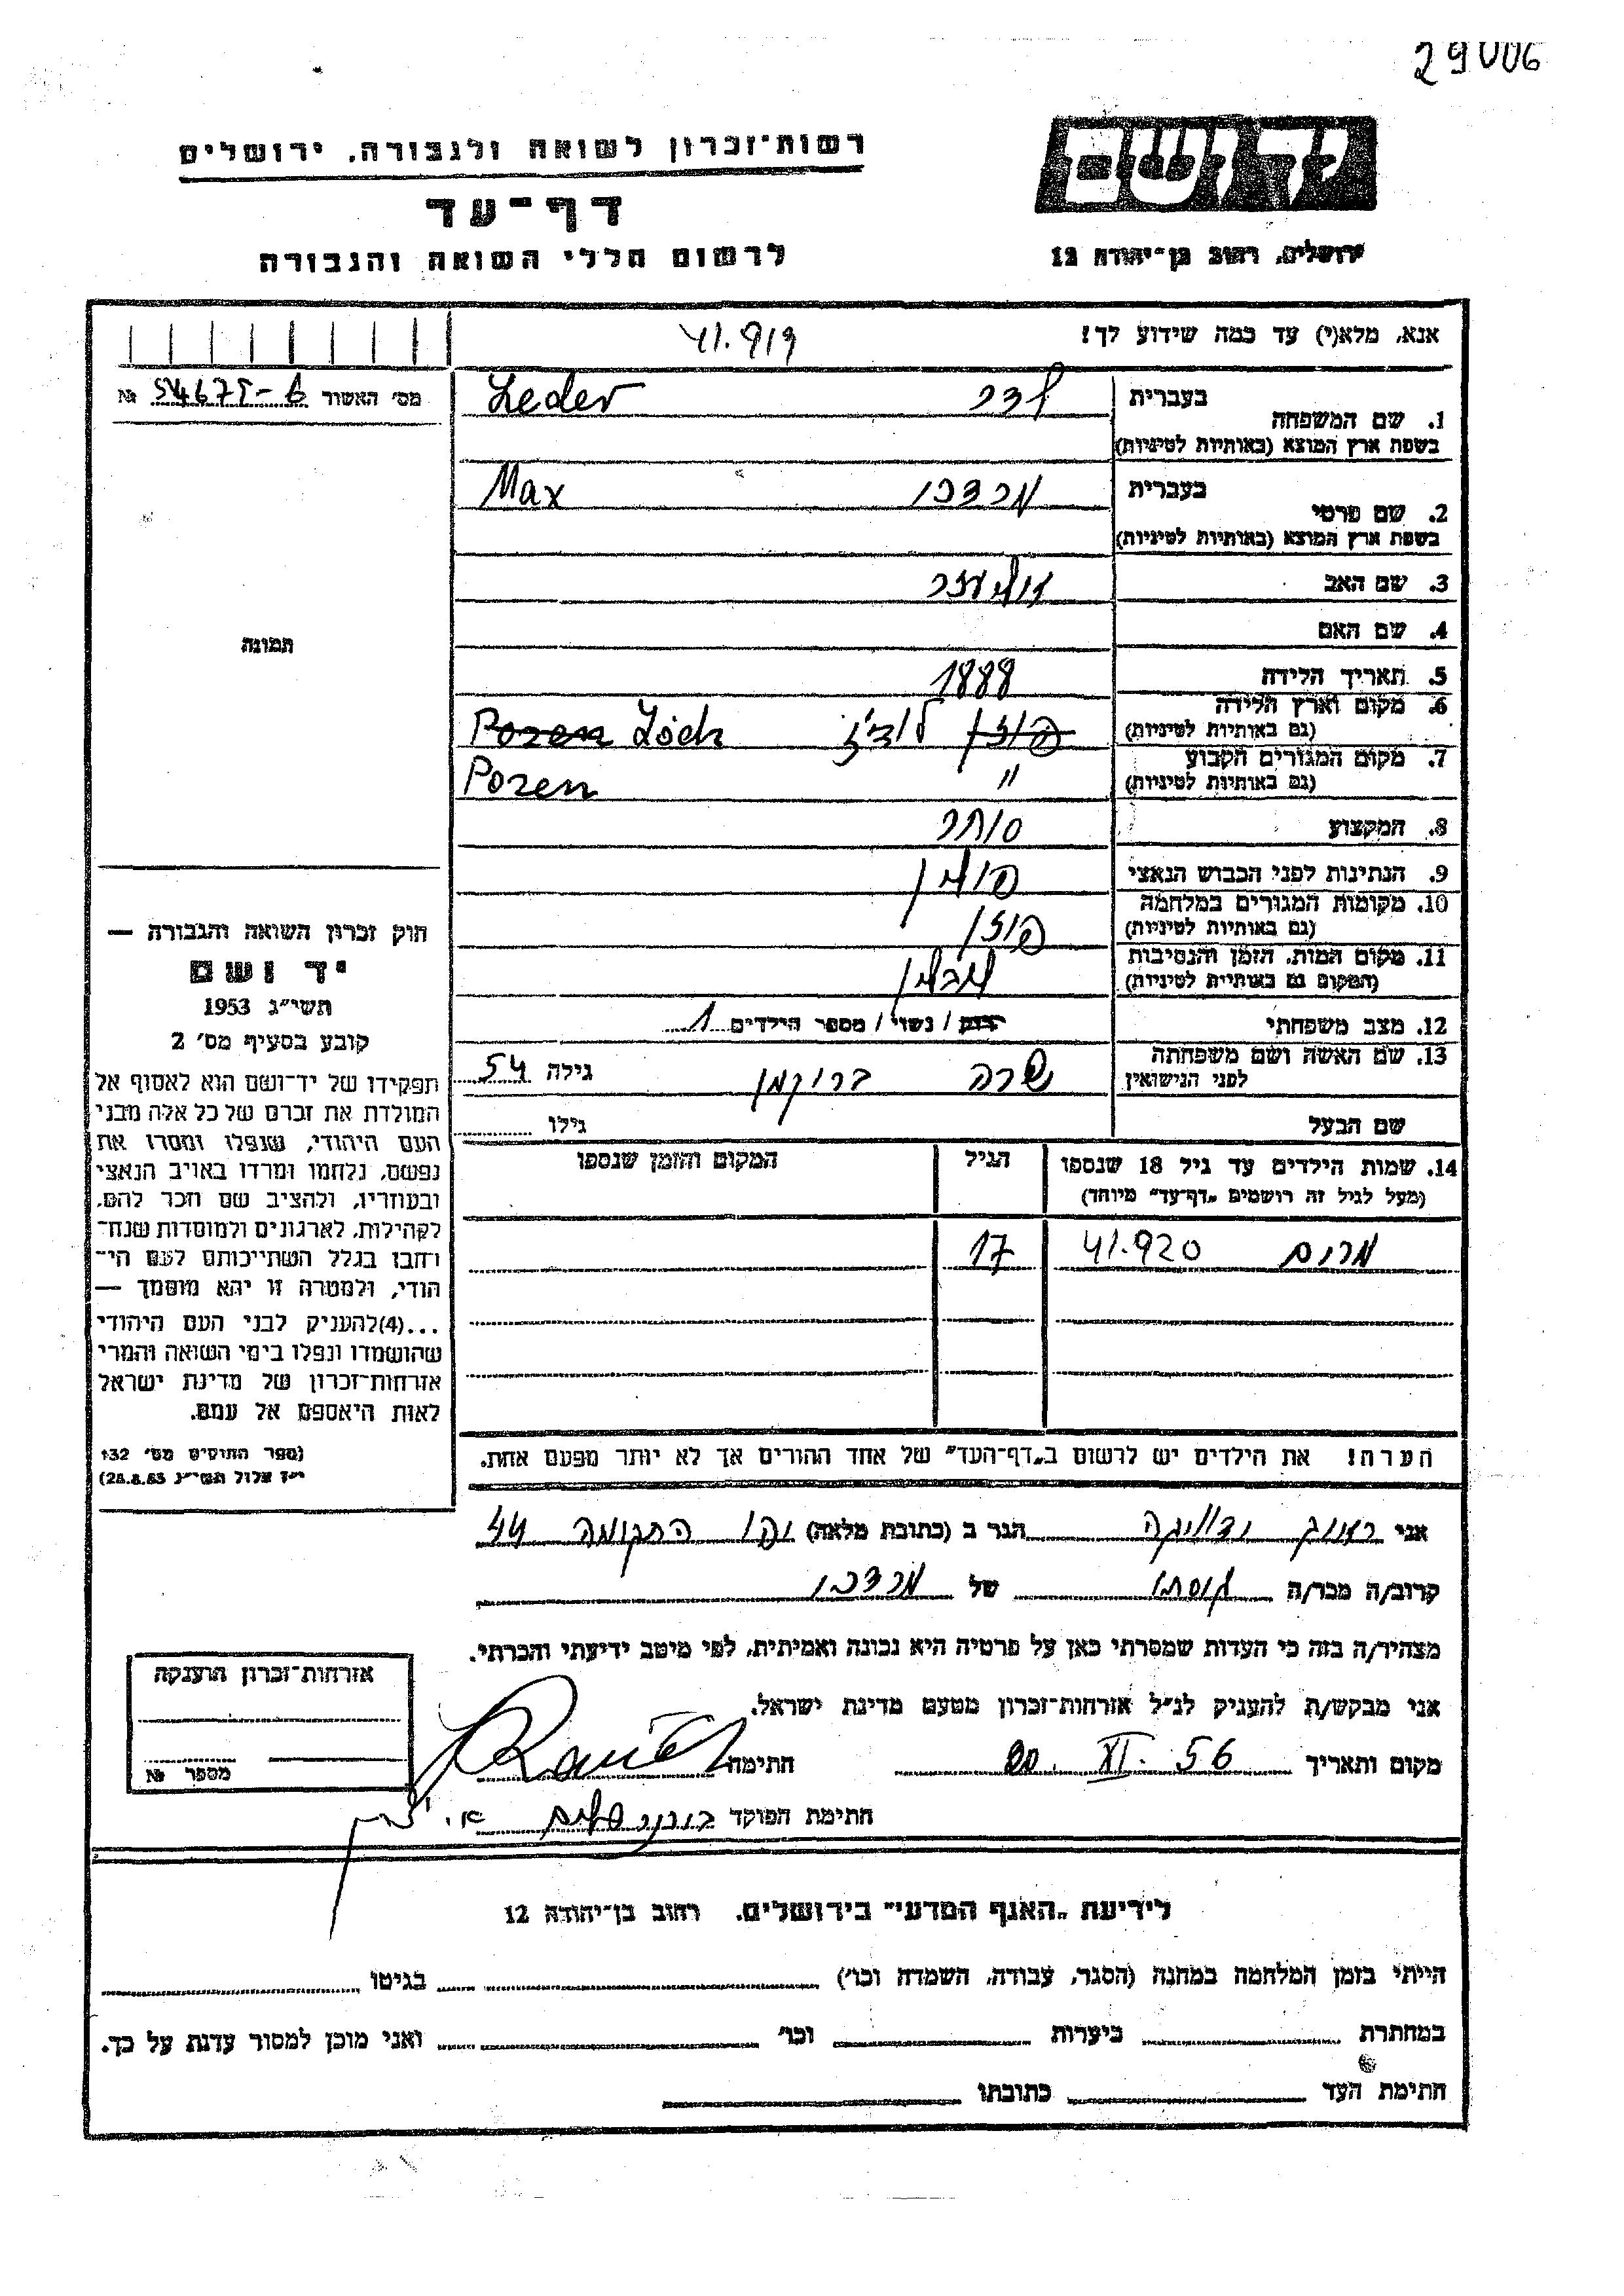 29006
רשות־זכרון לשואה ולגבורה, ירושלים
יד ושם
דף־עד
לרשום חללי השואה והגבורה
ירושלים, רחוב בן־יהודה 12
אנא, מלא(י) עד כמה שידוע לך!
41.919
מס׳ האשור № 54675-6
1. שם המשפחה
בעברית לדר Leder
בשפת ארץ המוצא (באותיות לטיניות)
2. שם פרטי
בעברית מרדכי Max
בשפת ארץ המוצא (באותיות לטיניות)
3. שם האב אליעזר
4. שם האם
תמונה
5. תאריך הלידה 1888
6. מקום וארץ הלידה פוזן לודז׳ Pozen Lódz
(גם באותיות לטיניות)
7. מקום המגורים הקבוע " Pozen
(גם באותיות לטיניות)
8. המקצוע סוחר
9. הנתינות לפני הכבוש הנאצי פולין
10. מקומות המגורים במלחמה פוזן
(גם באותיות לטיניות)
11. מקום המות, הזמן והנסיבות לובלין
(המקום גם באותיות לטיניות)
12. מצב משפחתי רווק / נשוי / מספר הילדים 1
13. שם האשה ושם משפחתה שרה ברוקמן גילה 54
לפני הנישואין
שם הבעל גילו
14. שמות הילדים עד גיל 18 שנספו הגיל המקום והזמן שנספו
(מעל לגיל זה רושמים „דף־עד” מיוחד)
מרים 41.920 17
הערה! את הילדים יש לרשום ב„דף־העד” של אחד ההורים אך לא יותר מפעם אחת.
חוק זכרון השואה והגבורה —
יד ושם
תשי״ג 1953
קובע בסעיף מס׳ 2
תפקידו של יד־ושם הוא לאסוף אל
המולדת את זכרם של כל אלה מבני
העם היהודי, שנפלו ומסרו את
נפשם, נלחמו ומרדו באויב הנאצי
ובעוזריו, ולהציב שם וזכר להם,
לקהילות, לארגונים ולמוסדות שנח־
רחבו בגלל השתייכותם לעם הי־
הודי, ולמטרה זו יהא מוסמך —
...(4)להעניק לבני העם היהודי
שהושמדו ונפלו בימי השואה והמרי
אזרחות־זכרון של מדינת ישראל
לאות היאספם אל עמם.
(ספר החוקים מס׳ 132
י״ז אלול תשי״ג 28.8.53)
אני הגר ב (כתובת מלאה) התקומה 44
קרוב/ה מכר/ה גיסתו של מרדכי
מצהיר/ה בזה כי העדות שמסרתי כאן על פרטיה היא נכונה ואמיתית, לפי מיטב ידיעתי והכרתי.
אני מבקש/ת להעניק לנ״ל אזרחות־זכרון מטעם מדינת ישראל.
מקום ותאריך 20. XI. 56 חתימה
חתימת הפוקד
אזרחות־זכרון הוענקה
מספר №
לידיעת „האגף המדעי” בירושלים, רחוב בן־יהודה 12
הייתי בזמן המלחמה במחנה (הסגר, עבודה, השמדה וכו׳) בגיטו
במחתרת ביערות וכו׳ ואני מוכן למסור עדות על כך.
חתימת העד כתובתו